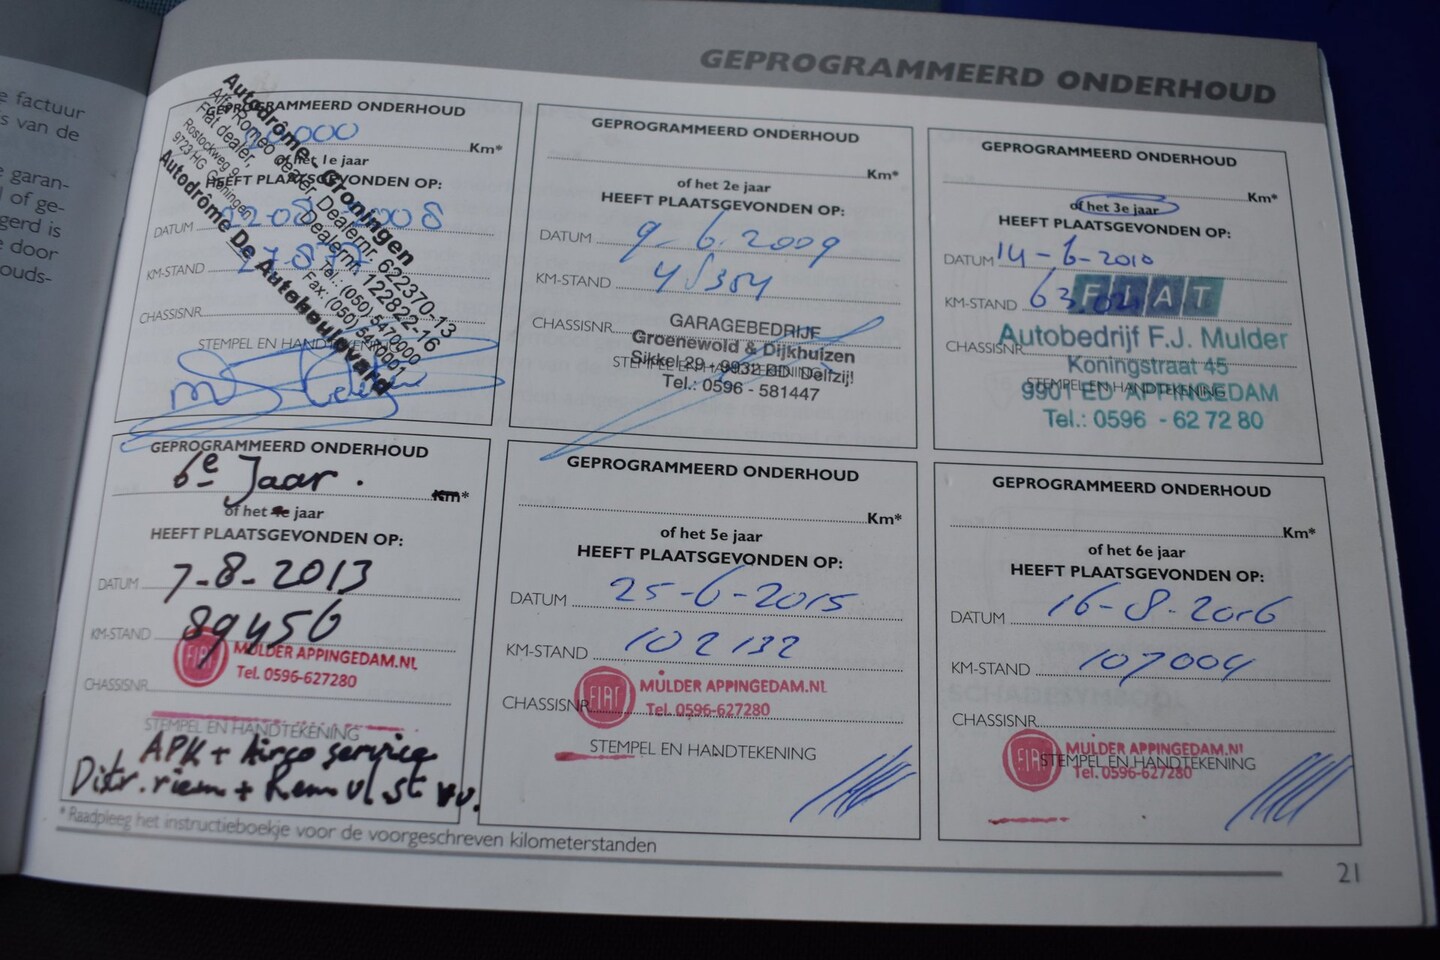 e factuur
s van de
e garan-
l of ge-
gerd is
e door
ouds-
GEPROGRAMMEERD ONDERHOUD
GEPROGRAMMEERD ONDERHOUD
Km*
of het 1e jaar
HEEFT PLAATSGEVONDEN OP:
DATUM
KM-STAND
CHASSISNR.
STEMPEL EN HANDTEKENING
Autodrôme Groningen
Alfa Romeo dealer, Dealernr. 622370-13
Fiat dealer, Dealernr. 122822-16
Rostockweg 9 Tel.: (050) 5470000
9723 HG Groningen Fax: (050)
Autodrôme De Autoboulevard
GEPROGRAMMEERD ONDERHOUD
Km*
of het 2e jaar
HEEFT PLAATSGEVONDEN OP:
DATUM 9-6-2009
KM-STAND 45354
CHASSISNR.
GARAGEBEDRIJF
Groenewold & Dijkhuizen
Sikkel 29 - 9932 BD Delfzijl
STEMPEL EN HANDTEKENING
Tel.: 0596 - 581447
GEPROGRAMMEERD ONDERHOUD
Km*
of het 3e jaar
HEEFT PLAATSGEVONDEN OP:
DATUM 14-6-2010
KM-STAND
FIAT
CHASSISNR.
Autobedrijf F.J. Mulder
Koningstraat 45
STEMPEL EN HANDTEKENING
9901 ED APPINGEDAM
Tel.: 0596 - 62 72 80
GEPROGRAMMEERD ONDERHOUD
6e Jaar.
Km*
of het 4e jaar
HEEFT PLAATSGEVONDEN OP:
DATUM 7-8-2013
KM-STAND 89456
FIAT MULDER APPINGEDAM.NL
Tel. 0596-627280
CHASSISNR.
STEMPEL EN HANDTEKENING
APK + Airco service
Distr.riem + Remvlst vv.
GEPROGRAMMEERD ONDERHOUD
Km*
of het 5e jaar
HEEFT PLAATSGEVONDEN OP:
DATUM 25-6-2015
KM-STAND 102132
FIAT MULDER APPINGEDAM.NL
CHASSISNR. Tel. 0596-627280
STEMPEL EN HANDTEKENING
GEPROGRAMMEERD ONDERHOUD
Km*
of het 6e jaar
HEEFT PLAATSGEVONDEN OP:
DATUM 16-8-2016
KM-STAND 107004
CHASSISNR.
FIAT MULDER APPINGEDAM.NL
STEMPEL EN HANDTEKENING
Tel. 0596-627280
* Raadpleeg het instructieboekje voor de voorgeschreven kilometerstanden
21